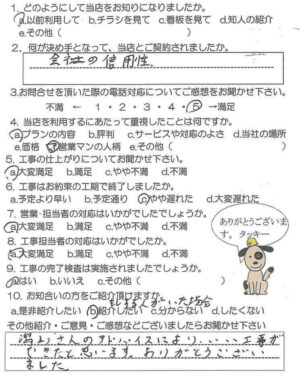 1. どのようにして当店をお知りになりましたか。
a.以前利用して b.チラシを見て c.看板を見て d.知人の紹介
e.その他(　　　　　)
2. 何が決め手となって、当店とご契約されましたか。
会社の信用性
3.お問合せを頂いた際の電話対応についてご感想をお聞かせ下さい。
不満 ← 1・2・3・4・5 →満足
4. 当店を利用するにあたって重視したことは何ですか。
a.プランの内容 b.評判 c.サービスや対応のよさ d.当社の場所
e.価格 f.営業マンの人柄 e.その他(　　　　　)
5. 工事の仕上がりについてお聞かせ下さい。
a.大変満足 b.満足 c.やや不満 d.不満
6. 工事はお約束の工期で終了しましたか。
a.予定より早い b.予定通り c.やや遅れた d.大変遅れた
7. 営業・担当者の対応はいかがでしたでしょうか。
a.大変満足 b.満足 c.やや不満 d.不満
8. 工事担当者の対応はいかがでしたか。
a.大変満足 b.満足 c.やや不満 d.不満
ありがとうございま
す。タッキー
9. 工事の完了検査は実施されましたでしょうか。
a.はい b.いいえ c.その他(　　　　　)
10. お知り合いの方をご紹介頂けますか。
する人がいた場合
a.是非紹介したい b.紹介したい c.分からない d.したくない
その他紹介・ご意見・ご感想などございましたらお聞かせ下さい
さんのアドバイスにより、いい工事が
できたと思います。ありがとうござい
ました。